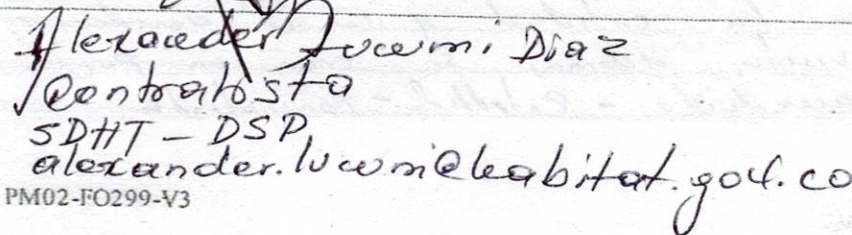 Alexander Lucumi Diaz
Contratista
SDHT - DSP
alexander.lucumi@habitat.gov.co
PM02-FO299-V3